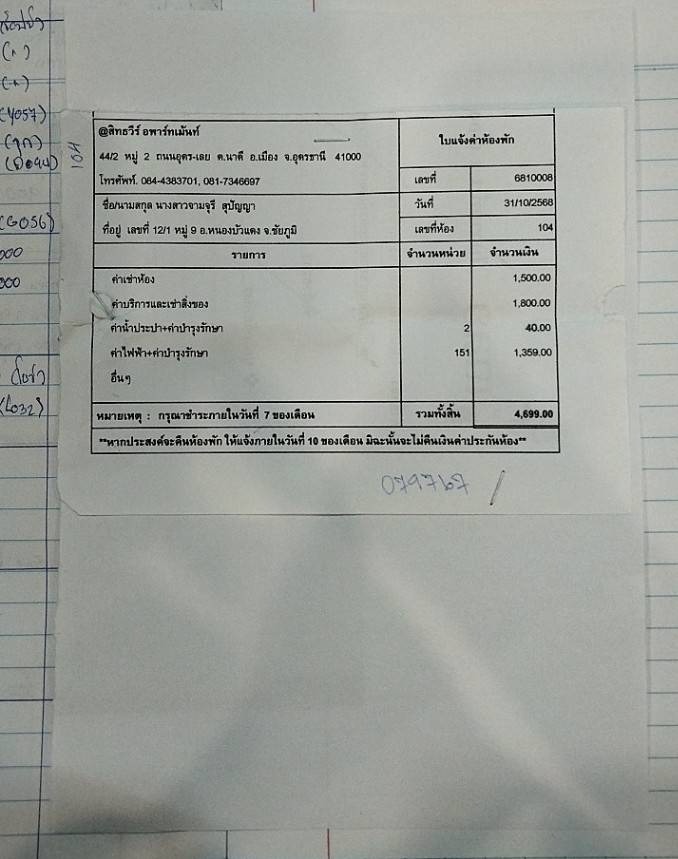 @สิทธวีร์ อพาร์ทเม้นท์
ใบแจ้งค่าห้องพัก
44/2 หมู่ 2 ถนนอุดร-เลย ต.นาดี อ.เมือง จ.อุดรธานี 41000
โทรศัพท์. 084-4383701, 081-7346697
เลขที่ 6810008
ชื่อ/นามสกุล นางสาวจามจุรี สุปัญญา
วันที่ 31/10/2568
ที่อยู่ เลขที่ 12/1 หมู่ 9 อ.หนองบัวแดง จ.ชัยภูมิ
เลขที่ห้อง 104
รายการ จำนวนหน่วย จำนวนเงิน
ค่าเช่าห้อง 1,500.00
ค่าบริการและเช่าสิ่งของ 1,800.00
ค่าน้ำประปา+ค่าบำรุงรักษา 2 40.00
ค่าไฟฟ้า+ค่าบำรุงรักษา 151 1,359.00
อื่นๆ
หมายเหตุ : กรุณาชำระภายในวันที่ 7 ของเดือน รวมทั้งสิ้น 4,699.00
**หากประสงค์จะคืนห้องพัก ให้แจ้งภายในวันที่ 10 ของเดือน มิฉะนั้นจะไม่คืนเงินค่าประกันห้อง**
079767
104
(4057)
(G056)
000
000
(6032)